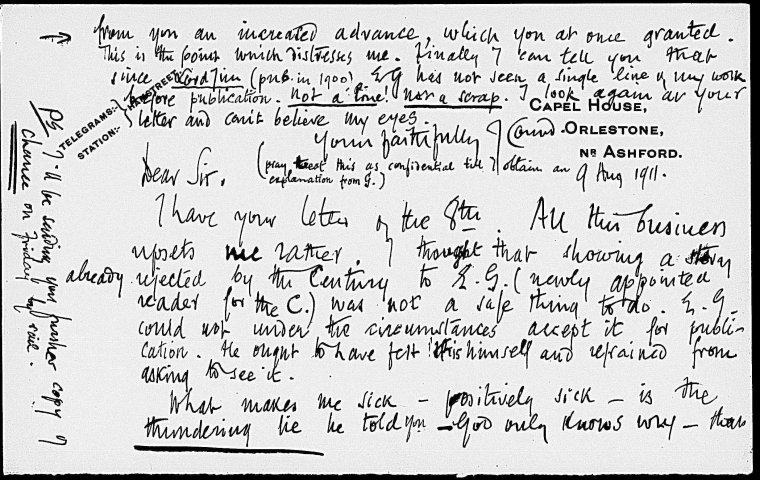 from you an increased advance, which you at once granted.
This is the point which distresses me. Finally I can tell you that
since Lord Jim (pub. in 1900) E.G. has not seen a single line of my work
before publication. Not a line! Not a scrap. I look again at your
letter and can't believe my eyes.
Yours faithfully
J. Conrad.
(pray treat this as confidential till I obtain an
explanation from G.)
TELEGRAMS:-
STATION:-
HAMSTREET
CAPEL HOUSE,
ORLESTONE,
NR ASHFORD.
9 Aug 1911.
Dear Sir.
I have your letter of the 8th. All this business
upsets me rather. I thought that showing a story
already rejected by the Century to E.G. (newly appointed
reader for the C.) was not a safe thing to do. E.G.
could not under the circumstances accept it for publi-
cation. He ought to have felt this himself and refrained from
asking to see it.
What makes me sick – positively sick – is the
thundering lie he told you – God only knows why – that
PS I'll be sending you further copy of
Chance on Friday by rail.